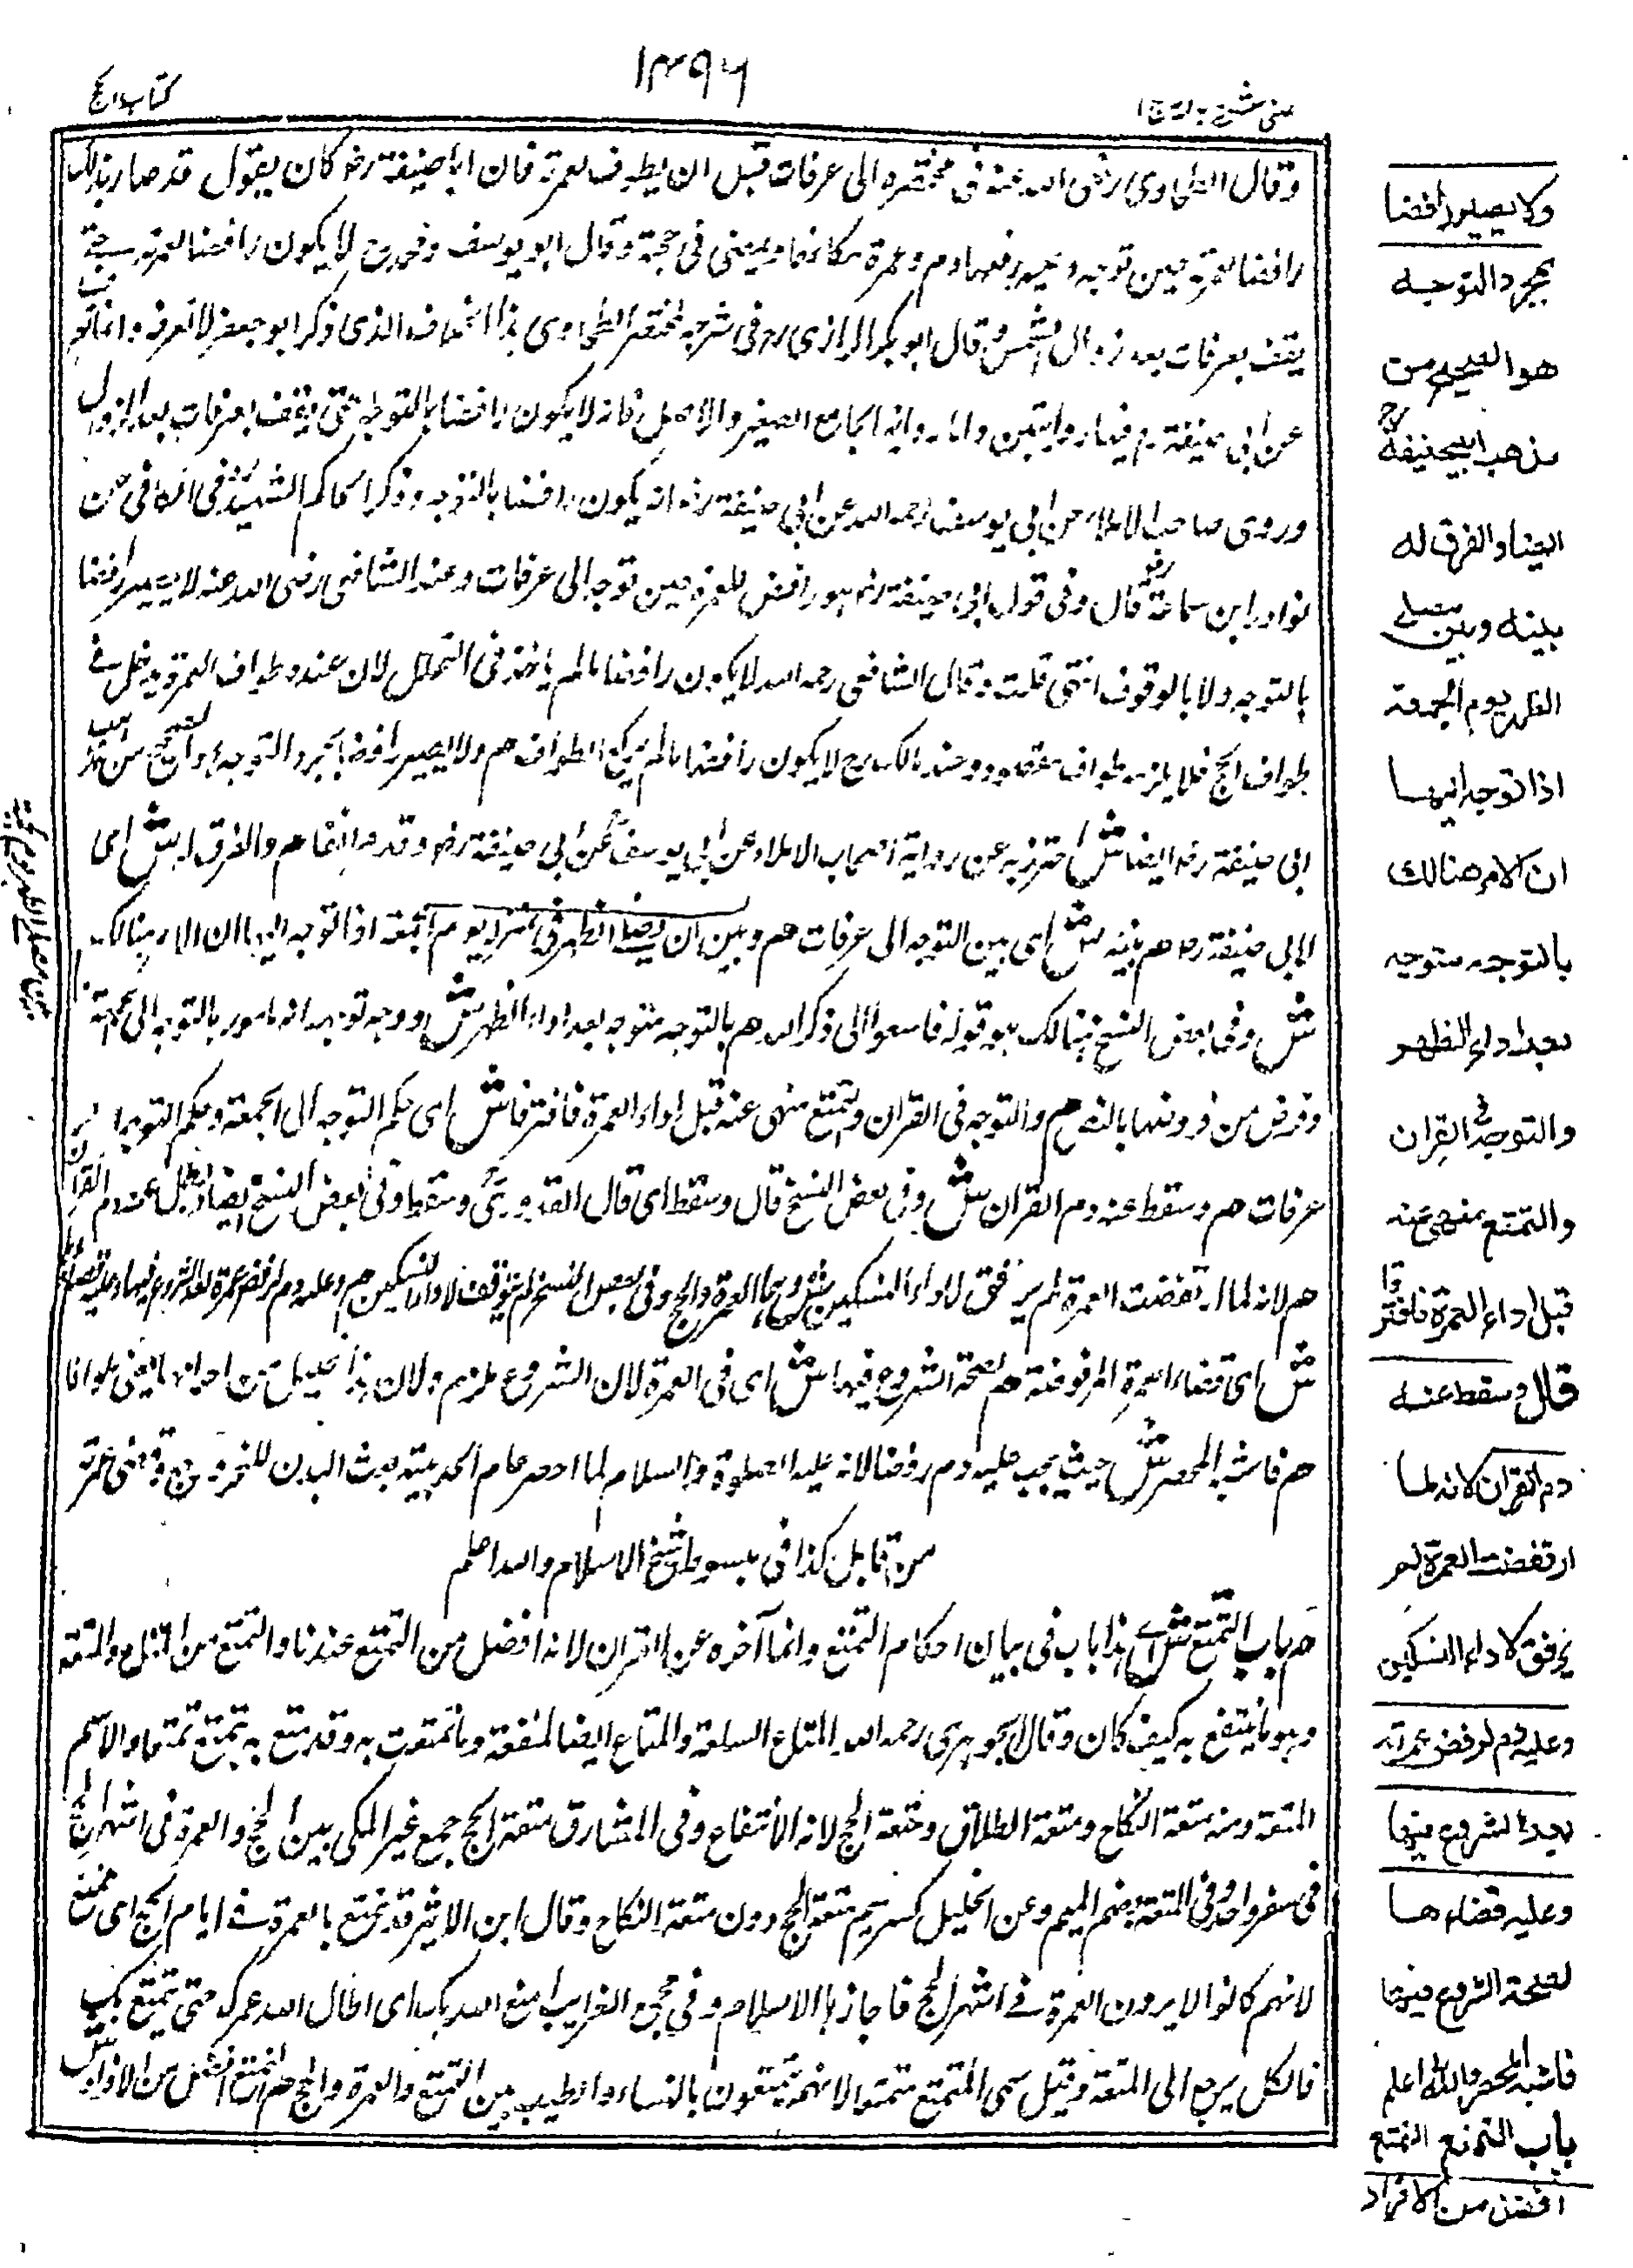 ١٤٩٦
كتاب الحج
وقال الطحاوى رضى الله عنه فى مختصره الى عرفات قبل ان يطوف لعمرته فان ابا حنيفة رض كان يقول قد صار بذلك
رافضا لعمرته حين توجه وعليه رفضها دم وعمرة مكانها ويمضى فى حجته وقال ابو يوسف ومحمد رح لا يكون رافضا لعمرته حتے
يقف بعرفات بعد زوال الشمس وقال ابو بكر الرازى رح فى شرحه لمختصر الطحاوى هذا الخلاف الذى ذكر ابو جعفر لا نعرفه وانما
عن ابى حنيفة رح فيها روايتين واما رواية الجامع الصغير والاصل فانه لا يكون رافضا بالتوجه حتى يقف بعرفات بعد الزوال
وروى صاحب الاملاء عن ابى يوسف رحمه الله عن ابى حنيفة رض انه يكون رافضا بالتوجه وذكر الحاكم الشهيد فى الكافى من
نوادر ابن سماعة قال وفى قول ابى حنيفة رض هو رافض للعمرة حين توجه الى عرفات وعند الشافعى رضى الله عنه لا يصير رافضا
بالتوجه ولا بالوقوف انتهى قلت وقال الشافعى رحمه الله لا يكون رافضا مالم ياخذ فى التحلل لان عنده طواف العمرة يدخل فے
طواف الحج فلا يلزمه طواف مقصود وعند مالك رح لا يكون رافضا مالم يركع الطواف هم ولا يصير رافضا بمجرد التوجه هو الصحيح من مذهب
ابى حنيفة رض ايضا ش احترز به عن رواية اصحاب الاملاء عن ابى يوسف عن ابى حنيفة رض وقد مر انفا هم والفرق له ش اى
لابى حنيفة رح هم بينه ش اى بين التوجه الى عرفات هم وبين ان يصلے الظهر فى منزله يوم الجمعة اذا توجه اليها ان الامر هنالك
ش وفى بعض النسخ هنالك هو قوله فاسعوا الى ذكر الله هم بالتوجه متوجه بعد اداء الظهر ش ووجه توجهه انه مامور بالتوجه الى الجمعة
وفرض من فروضها بالنص هم والتوجه فى القران والتمتع منهى عنه قبل اداء العمرة فافترقا ش اى حكم التوجه الى الجمعة وحكم التوجه الى
عرفات هم وسقط عنه دم القران ش وفى بعض النسخ قال وسقط اى قال القدورى وسقط وفى بعض النسخ ايضا وبطل عنه دم القران
هم لانه لما ارتفضت العمرة لم يرتفق لاداء النسكين ش وهما العمرة والحج وفى بعض النسخ لم يتوفق لاداء النسكين هم وعليه دم لرفض عمرته بعد الشروع فيها وعليه قضاؤها
ش اى قضاء العمرة المرفوضة هم لصحة الشروع فيها ش اى فى العمرة لان الشروع ملزم ولان هذا تحليل من احرامها يعنى بلا وانها
هم فاشبه المحصر ش حيث يجب عليه دم رفضا لانه عليه الصلوة والسلام لما احصر عام الحديبية بعث البدن للنحر وقضى عمرته
من قابل كذا فى مبسوط شيخ الاسلام والله اعلم
هم باب التمتع ش اے هذا باب فى بيان احكام التمتع وانما آخره عن القران لانه افضل من التمتع عندنا والتمتع من المتاع والمتعة
وهو ما ينتفع به كيف كان وقال الجوهرى رحمه الله المتاع السلعة والمتاع ايضا المنفعة وما تمتعت به وقد متع به يتمتع تمتعا والاسم
المتعة ومنه متعة النكاح ومتعة الطلاق ومتعة الحج لانه الانتفاع وفى المشارق متعة الحج جمع غير المكى بين الحج والعمرة فى اشهر الحج
فى سفر واحد وفى المتعة بضم الميم وعن الخليل كسر ميم متعة الحج دون متعة النكاح وقال ابن الاثير قد تمتع بالعمرة فے ايام الحج اى تمتع
لانهم كانوا لا يرون العمرة فے اشهر الحج فاجازها الاسلام وفى مجمع الغرايب امتع الله بك اى اطال الله عمرك حتى يتمتع بك
فالكل يرجع الى المتعة وقيل سمى المتمتع متمتعا لانهم يتمتعون بالنساء والطيب بين التمتع والعمرة والحج هم التمتع افضل من الافراد ش
ولا يصير رافضا
بمجرد التوجه
هو الصحيح من
مذهب ابيحنيفة رح
ايضا والفرق له
بينه وبين مصلے
الظهر يوم الجمعة
اذا توجه اليها
ان الامر هنالك
بالتوجه متوجه
بعد اداء الظهر
والتوجه فى القران
والتمتع منهى عنه
قبل اداء العمرة فافترقا
قال وسقط عنه
دم القران لانه لما
ارتفضت العمرة لم
يرتفق لاداء النسكين
وعليه دم لرفض عمرته
بعد الشروع فيها
وعليه قضاءها
لصحة الشروع فيها
فاشبه المحصر والله اعلم
باب التمتع التمتع
افضل من الافراد